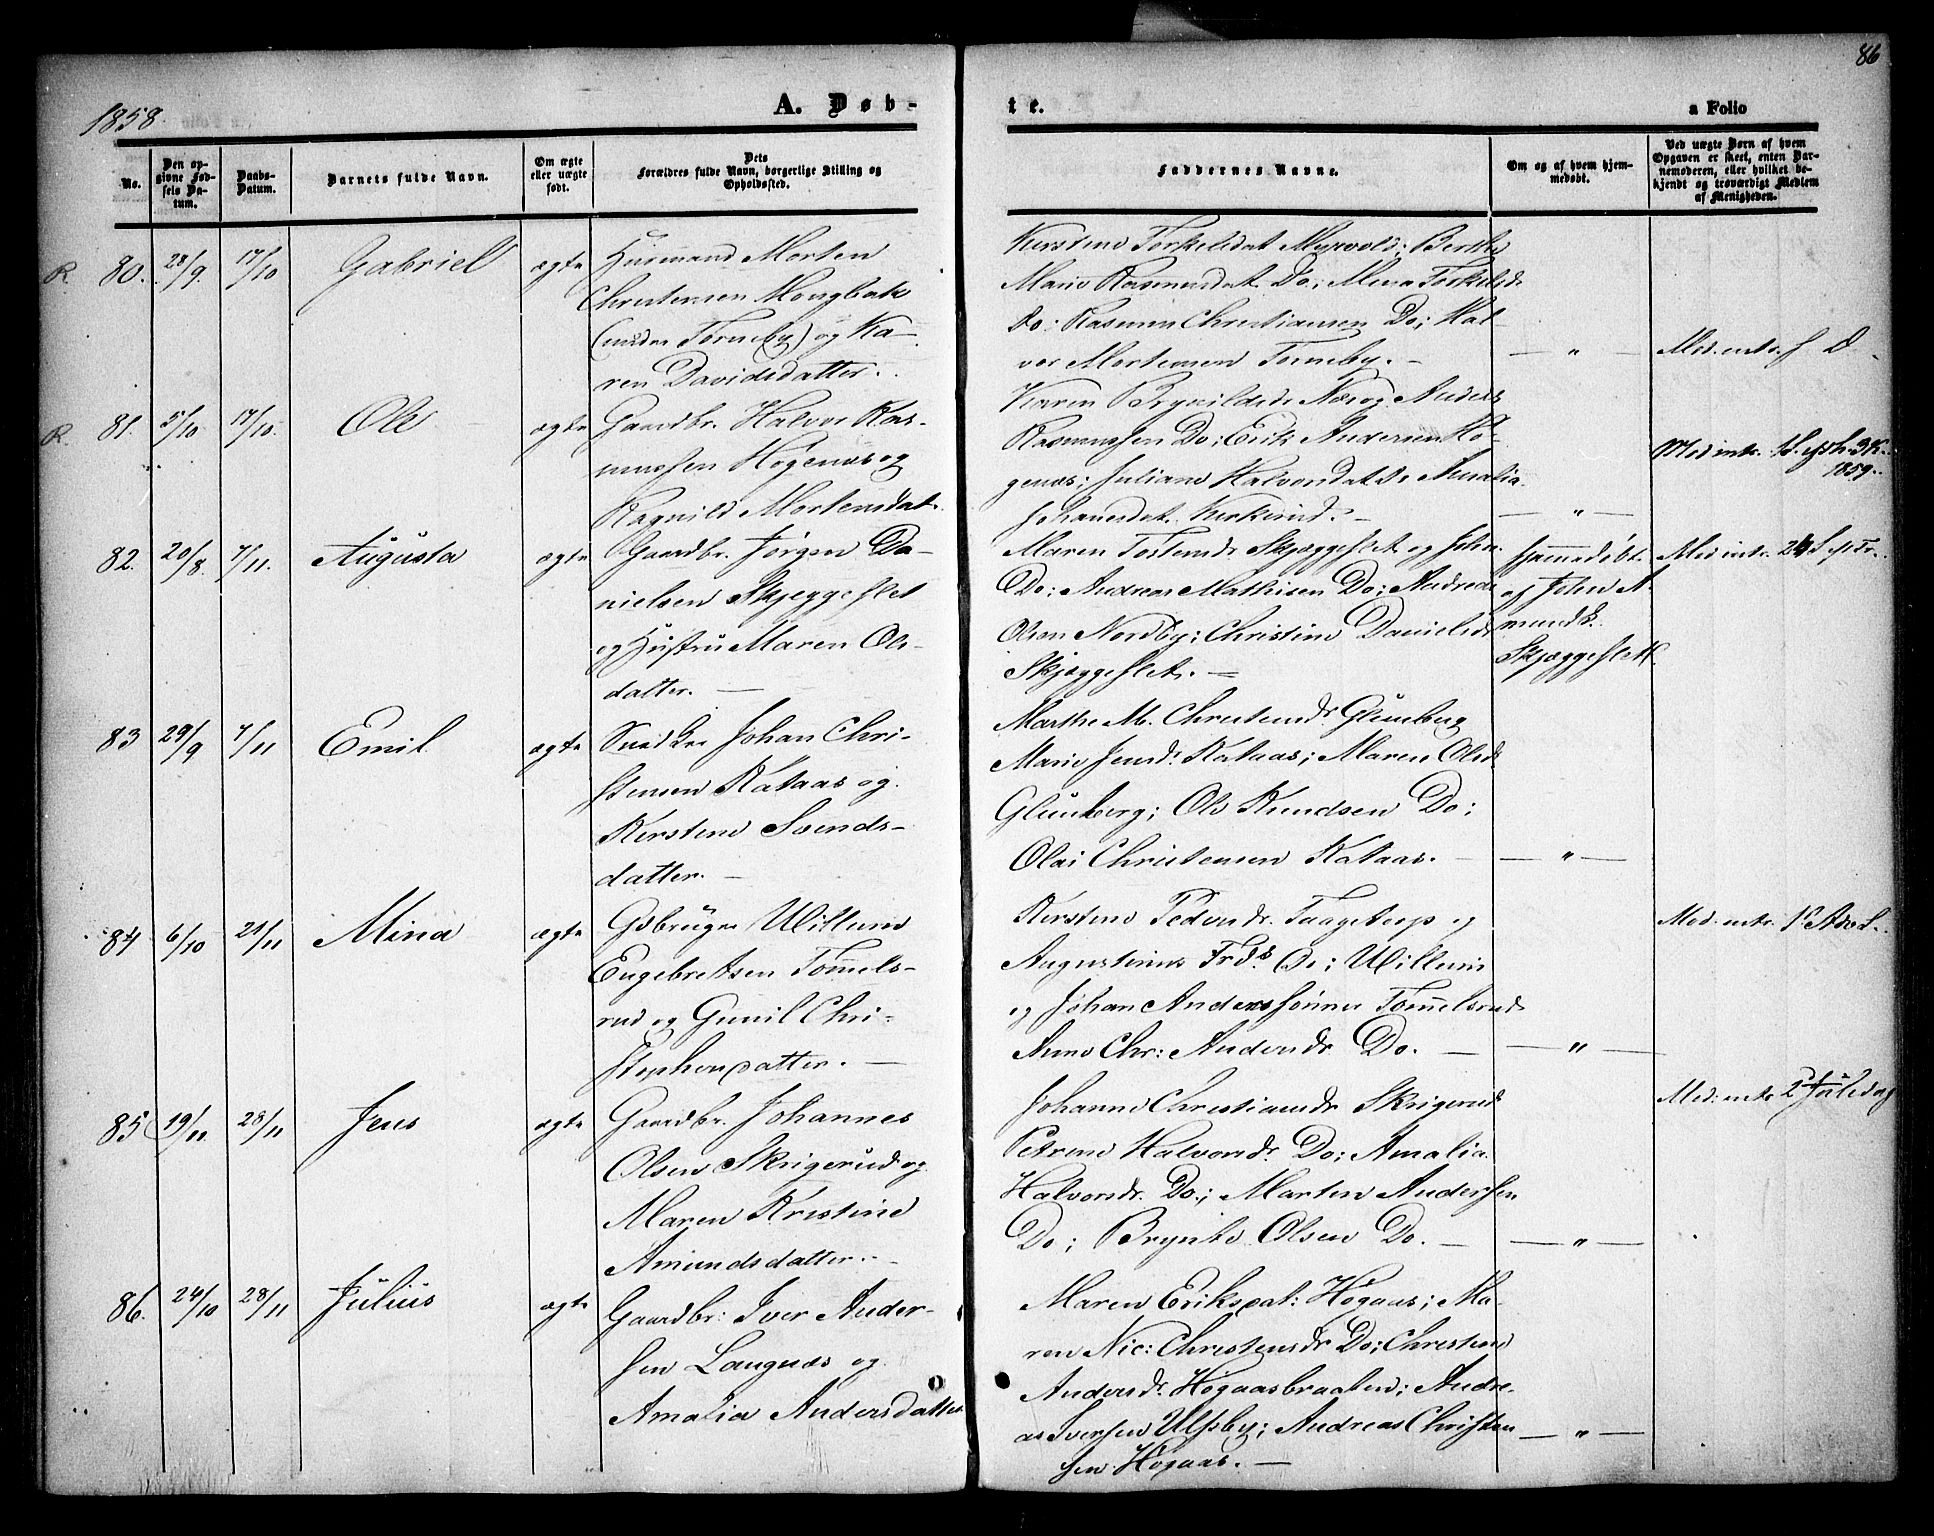 86
1858.
A. Døb-
te.
a Folio
No.
Den op-
givne Fød-
sels Da-
tum.
Daabs-
Datum.
Barnets fulde Navn.
Om ægte
eller uægte
født.
Dets
Forældres fulde Navn, borgerlige Stilling og
Opholdssted.
Faddernes Navne.
Om og af hvem hjem-
medøbt.
Ved uægte Børn af hvem
Opgaven er skeet, enten Bar-
nemoderen, eller hvilket be-
kjendt og troværdigt Medlem
af Menigheden.
R. 80. 28/9. 17/10 Gabriel ægte Husmand Morten
Christensen Mongbak
(under Torneby) og Ka-
ren Davidsdatter.
Kirstine Torkelsdat. Myrvold; Berthe
Marie Rasmusdat. Do; Mina Torkilsd.
Do; Rasmus Christiansen Do; Hal-
vor Mortensen Torneby. -
— " — Med. intr. f D.
R. 81. 5/10 17/10. Ole ægte Gaardbr. Halvor Ras-
mussen Høgenæs og
Ragnild Mortensdat.
Karen Brynildsdr. Næs og Anders
Rasmussen Do; Erik Andersen Hø-
genæs; Juliane Halvorsdat. Do Amalia
Johanesdat. Kirkerud. -
— " — Med intr. 1S. e. h. 3 K.
1859.
82. 20/8. 7/11. Augusta ægte Gaardbr. Jørgen Da-
nielsen Skjeggeslet
og Hustru Maren Ols-
datter. —
Maren Torstensdr. Skjæggeslet og John
Do; Andreas Mathisen Do; Andreas
Olsen Nordby; Christine Danielsdr.
Skjæggeslet. —
Hjemmedøbt
af John A-
mundS.
Skjæggeslett.
Med intr. 24 S. p. Tr.
83 29/9 7/11 Emil ægte Snedker Johan Chri-
stensen Kataas og
Kirstine Svends-
datter. —
Marthe M. Christensdr. Glenberg
Marie Jensdr. Kataas; Maren Olsdr.
Glenberg; Ole Knudsen Do;
Olai Christensen Kataas. -
— " —
84 6/10 21/11 Mina ægte Gdbruger Willum
Engebretsen Tommels-
rud og Gunil Chri-
stophersdatter. —
Kirstine Pedersdr. Taagetorp og
Augustinus Frds. Do; Willum
og Johan Anders Sønner Tommelsrud
Anne Chr: Andersdr. Do. —
— " —
Med. intr. 1S. Adv. S.
85 19/11 28/11 Jens ægte Gaardbr. Johannes
Olsen Skrigerud og
Maren Kristine
Amundsdatter. -
Johanne Christiansdr. Skrigerud
Petrine Halvorsdr. Do; Amalia
Halvorsdr. Do; Martin Andersen
Do; Brynte Olsen Do. —
— " —
Med: intr. 2 Juledag
86. 24/10 28/11 Julius ægte Gaardbr: Iver Ander-
sen Langnæs og
Amalia Andersdatter
Maren Eriksdat: Høgaas; Ma-
ren Nic: Christensdr. Do; Christine
Andersdr. Høgaasbraaten; Andre-
as Iversen Ulfsby; Andreas Christen
sen Høgaas. —
— " —